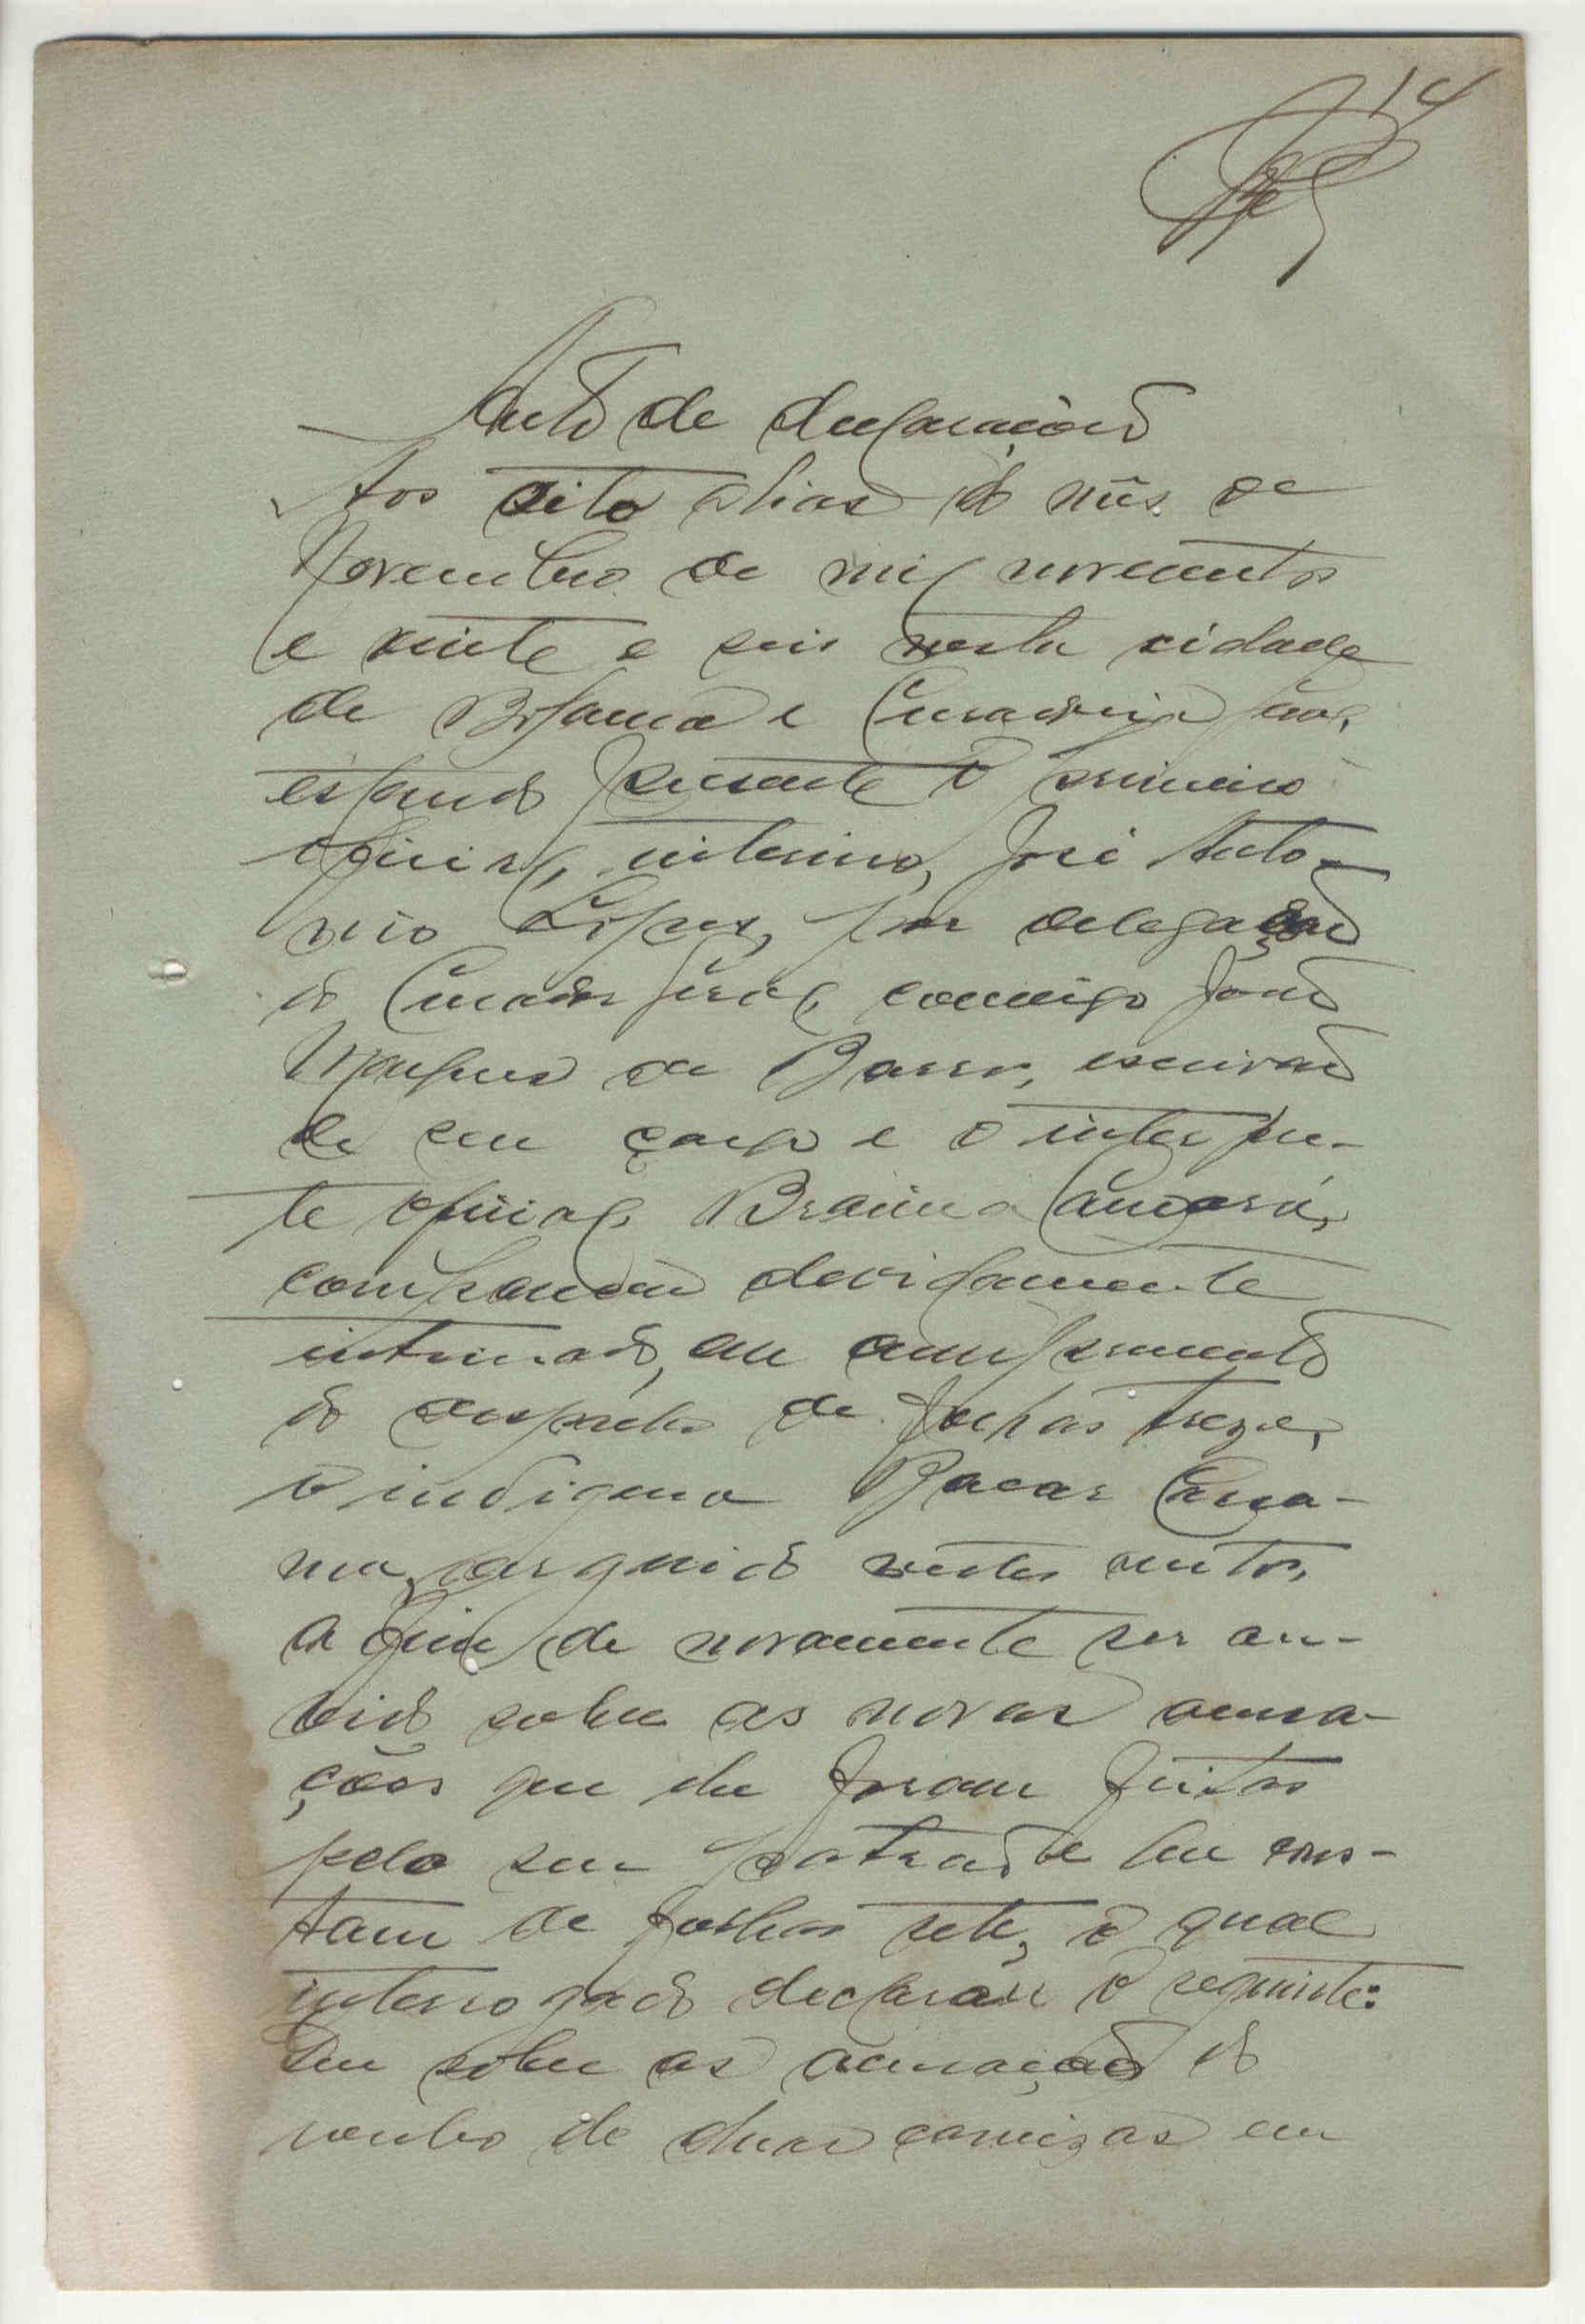 14
Auto de declaraçoes
Aos oito dias do mês de
Novembro de mil novecentos
e vinte e seis nesta cidade
de Bolama e Curadoria Geral,
estando presente o primeiro
oficial, interino, José Anto-
nio Lopes, por delegação
do Curador Geral, commigo João
Marques de Barros, escrivão
de seu cargo e o interpre-
te oficial, Braima Camará,
compareceu devidamente
intimado, em cumprimento
do despacho de folhas treze,
o indigena Bacar
arguido nestes autos,
a fim de novamente ser ou-
vido sobre as novas acusa-
ções que lhe foram feitas
pelo seu patrão e que cons-
tam de folhas sete, o qual
interrogado declarou o seguinte:
Que sobre as acusação do
roubo de duas camizas em